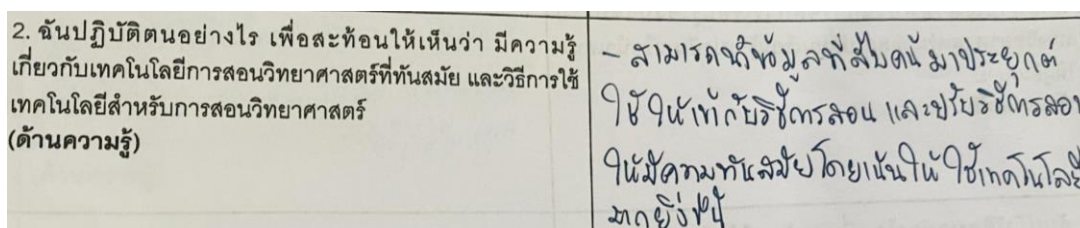 2. ฉันปฏิบัติตนอย่างไร เพื่อสะท้อนให้เห็นว่า มีความรู้
เกี่ยวกับเทคโนโลยีการสอนวิทยาศาสตร์ที่ทันสมัย และวิธีการใช้
เทคโนโลยีสำหรับการสอนวิทยาศาสตร์
(ด้านความรู้)
- สามารถนำข้อมูลที่สืบค้นมาประยุกต์
ใช้ให้เข้ากับวิธีการสอน และปรับวิธีการสอน
ให้มีความทันสมัยโดยเน้นให้ใช้เทคโนโลยี
มากยิ่งขึ้น